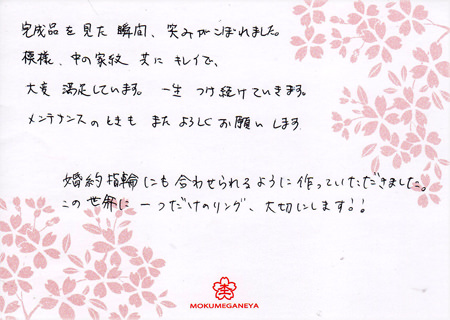 完成品を見た瞬間、笑みがこぼれました。
模様、中の家紋 共に キレイで、
大変 満足しています。 一生 つけ続けていきます。
メンテナンスのときも また よろしく お願いします
婚約指輪にも合わせられるように作っていただきました。
この世界に一つだけのリング、大切にします!!
MOKUMEGANEYA